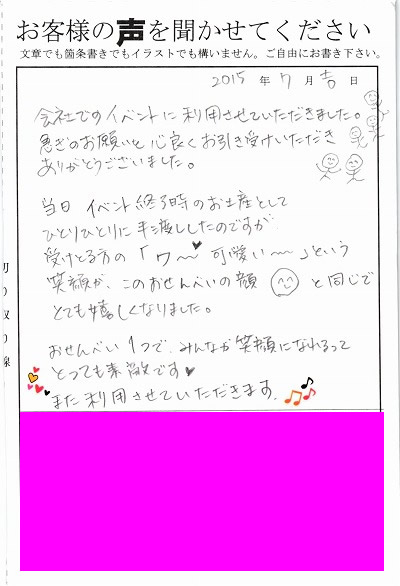 お客様の声を聞かせてください
文章でも箇条書きでもイラストでも構いません。ご自由にお書き下さい。
2015 年 7 月 吉 日
会社でのイベントに利用させていただきました。
急ぎのお願いを心良くお引き受けいただき
ありがとうございました。
当日 イベント終了時のお土産として
ひとりひとりに手渡ししたのですが
受けとる方の「ワ〜♥可愛い〜」という
笑顔が、このおせんべいの顔 と同じで
とても嬉しくなりました。
おせんべい1つで、みんなが笑顔になれるって
とっても素敵です♥
また利用させていただきます。
切り取り線